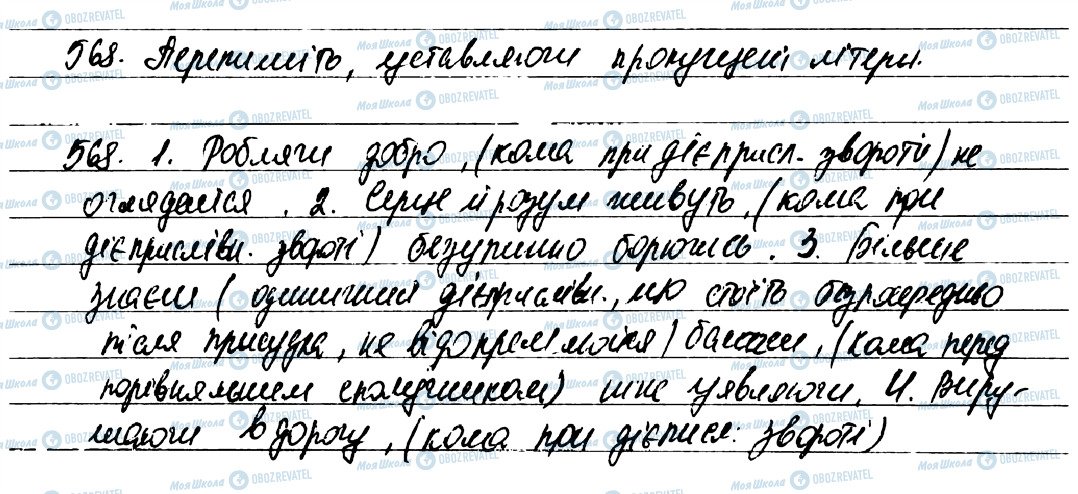 568. Перепишіть, уставляючи пропущені літери.
568. 1. Роблячи добро, (кома при дієприсл. звороті) не
оглядайся. 2. Серце й розум живуть, (кома при
дієприслівн. звороті) безупинно борючись. 3. Більше
знаєш (одиничний дієприслівн., що стоїть безпосередньо
після присудка, не відокремлюється) бачачи, (кома перед
порівняльним сполучником) ніж уявляючи. 4. Виру-
шаючи в дорогу, (кома при дієприсл. звороті)